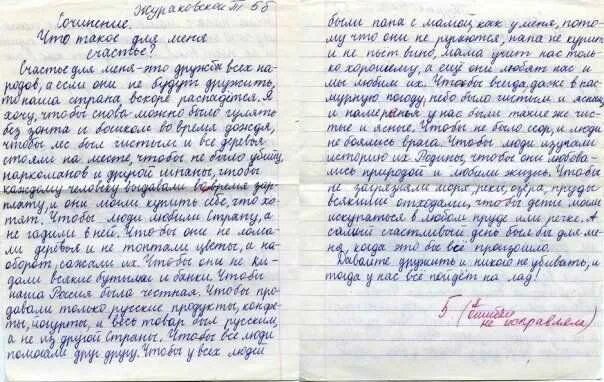 Жураковской Т 5б
Сочинение.
Что такое для меня
счастье?
Счастье для меня-это дружба всех на-
родов, а если они не будут дружить,
то наша страна вскоре распадётся. Я
хочу, чтобы снова можно было гулять
без зонта и босиком во время дождя,
чтобы лес был чистым и все деревья
стояли на месте, чтобы не было убийц
наркоманов и другой шпаны, чтобы
каждому человеку выдавали вовремя зар-
плату, и они могли купить себе, что хо-
тят. Чтобы люди любили страну, а
не гадили в ней. Чтобы они не лома-
ли деревья и не топтали цветы, а на-
оборот, сажали их. Чтобы они не ки-
дали всякие бутылки и банки. Чтобы
наша Россия была честная. Чтобы про-
давали только русские продукты, конфе-
ты, йогурты, и весь товар был русским,
а не из другой страны. Чтобы все люди
помогали друг другу. Чтобы у всех людей
были папа с мамой, как у меня, пото-
му что они не ругаются, папа не курит
и не пьёт вино, мама учит нас толь-
ко хорошему, а ещё они любят нас и
мы любим их. Чтобы всегда, даже в пас-
мурную погоду, небо было чистым и ясным,
и поме у нас были такие же чис-
тые и ясные. Чтобы не было ссор, и люди
не боялись врага. Чтобы люди изучали
историю их Родины, чтобы они любова-
лись природой и любили жизнь. Чтобы
не загрязняли моря, реки, озёра, пруды
всякими отходами, чтобы дети могли
искупаться в любом пруде или речке. А
самый счастливый день был бы для ме-
ня, когда это бы всё произошло.
Давайте дружить и никого не убивать, и
тогда у нас всё пойдёт на лад!
5 (я ошибки
не исправляла)